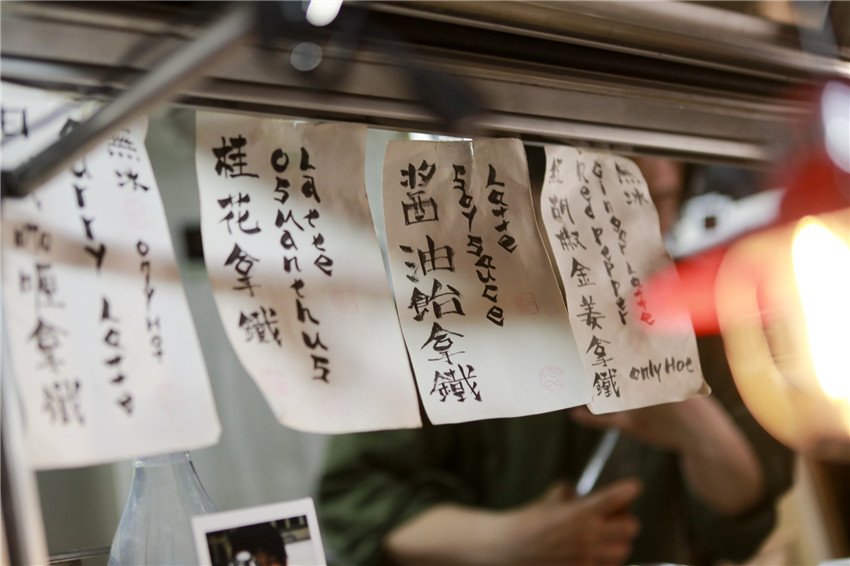 咖哩拿鐵
Curry Latte
無冰 only Hot
桂花拿鐵
Osmanthus
Latee
醬油飴拿鐵
Soysauce
Latte
紅胡椒金姜拿鐵
red pepper
Ginger Latte
無冰
only Hoe